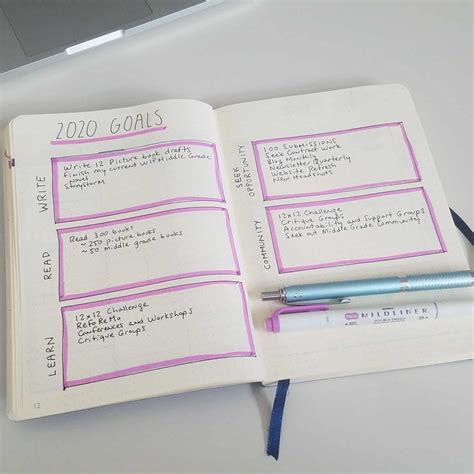 2020 GOALS
WRITE
Write 12 Picture book drafts
Finish my current WIP Middle Grade
Novel
Storystorm
READ
Read 300 books
~ 250 picture books
~ 50 middle grade books
LEARN
12x12 Challenge
ReFoReMo
Conferences and Workshops
Critique Groups
12
SEEK
OPPORTUNITY
100 Submissions
Seek Contract Work
Blog Monthly
Newsletter Quarterly
Website Refresh
New Headshots
COMMUNITY
12x12 Challenge
Critique Groups
Accountability and Support Groups
Seek out Middle Grade Community
MILDLINER